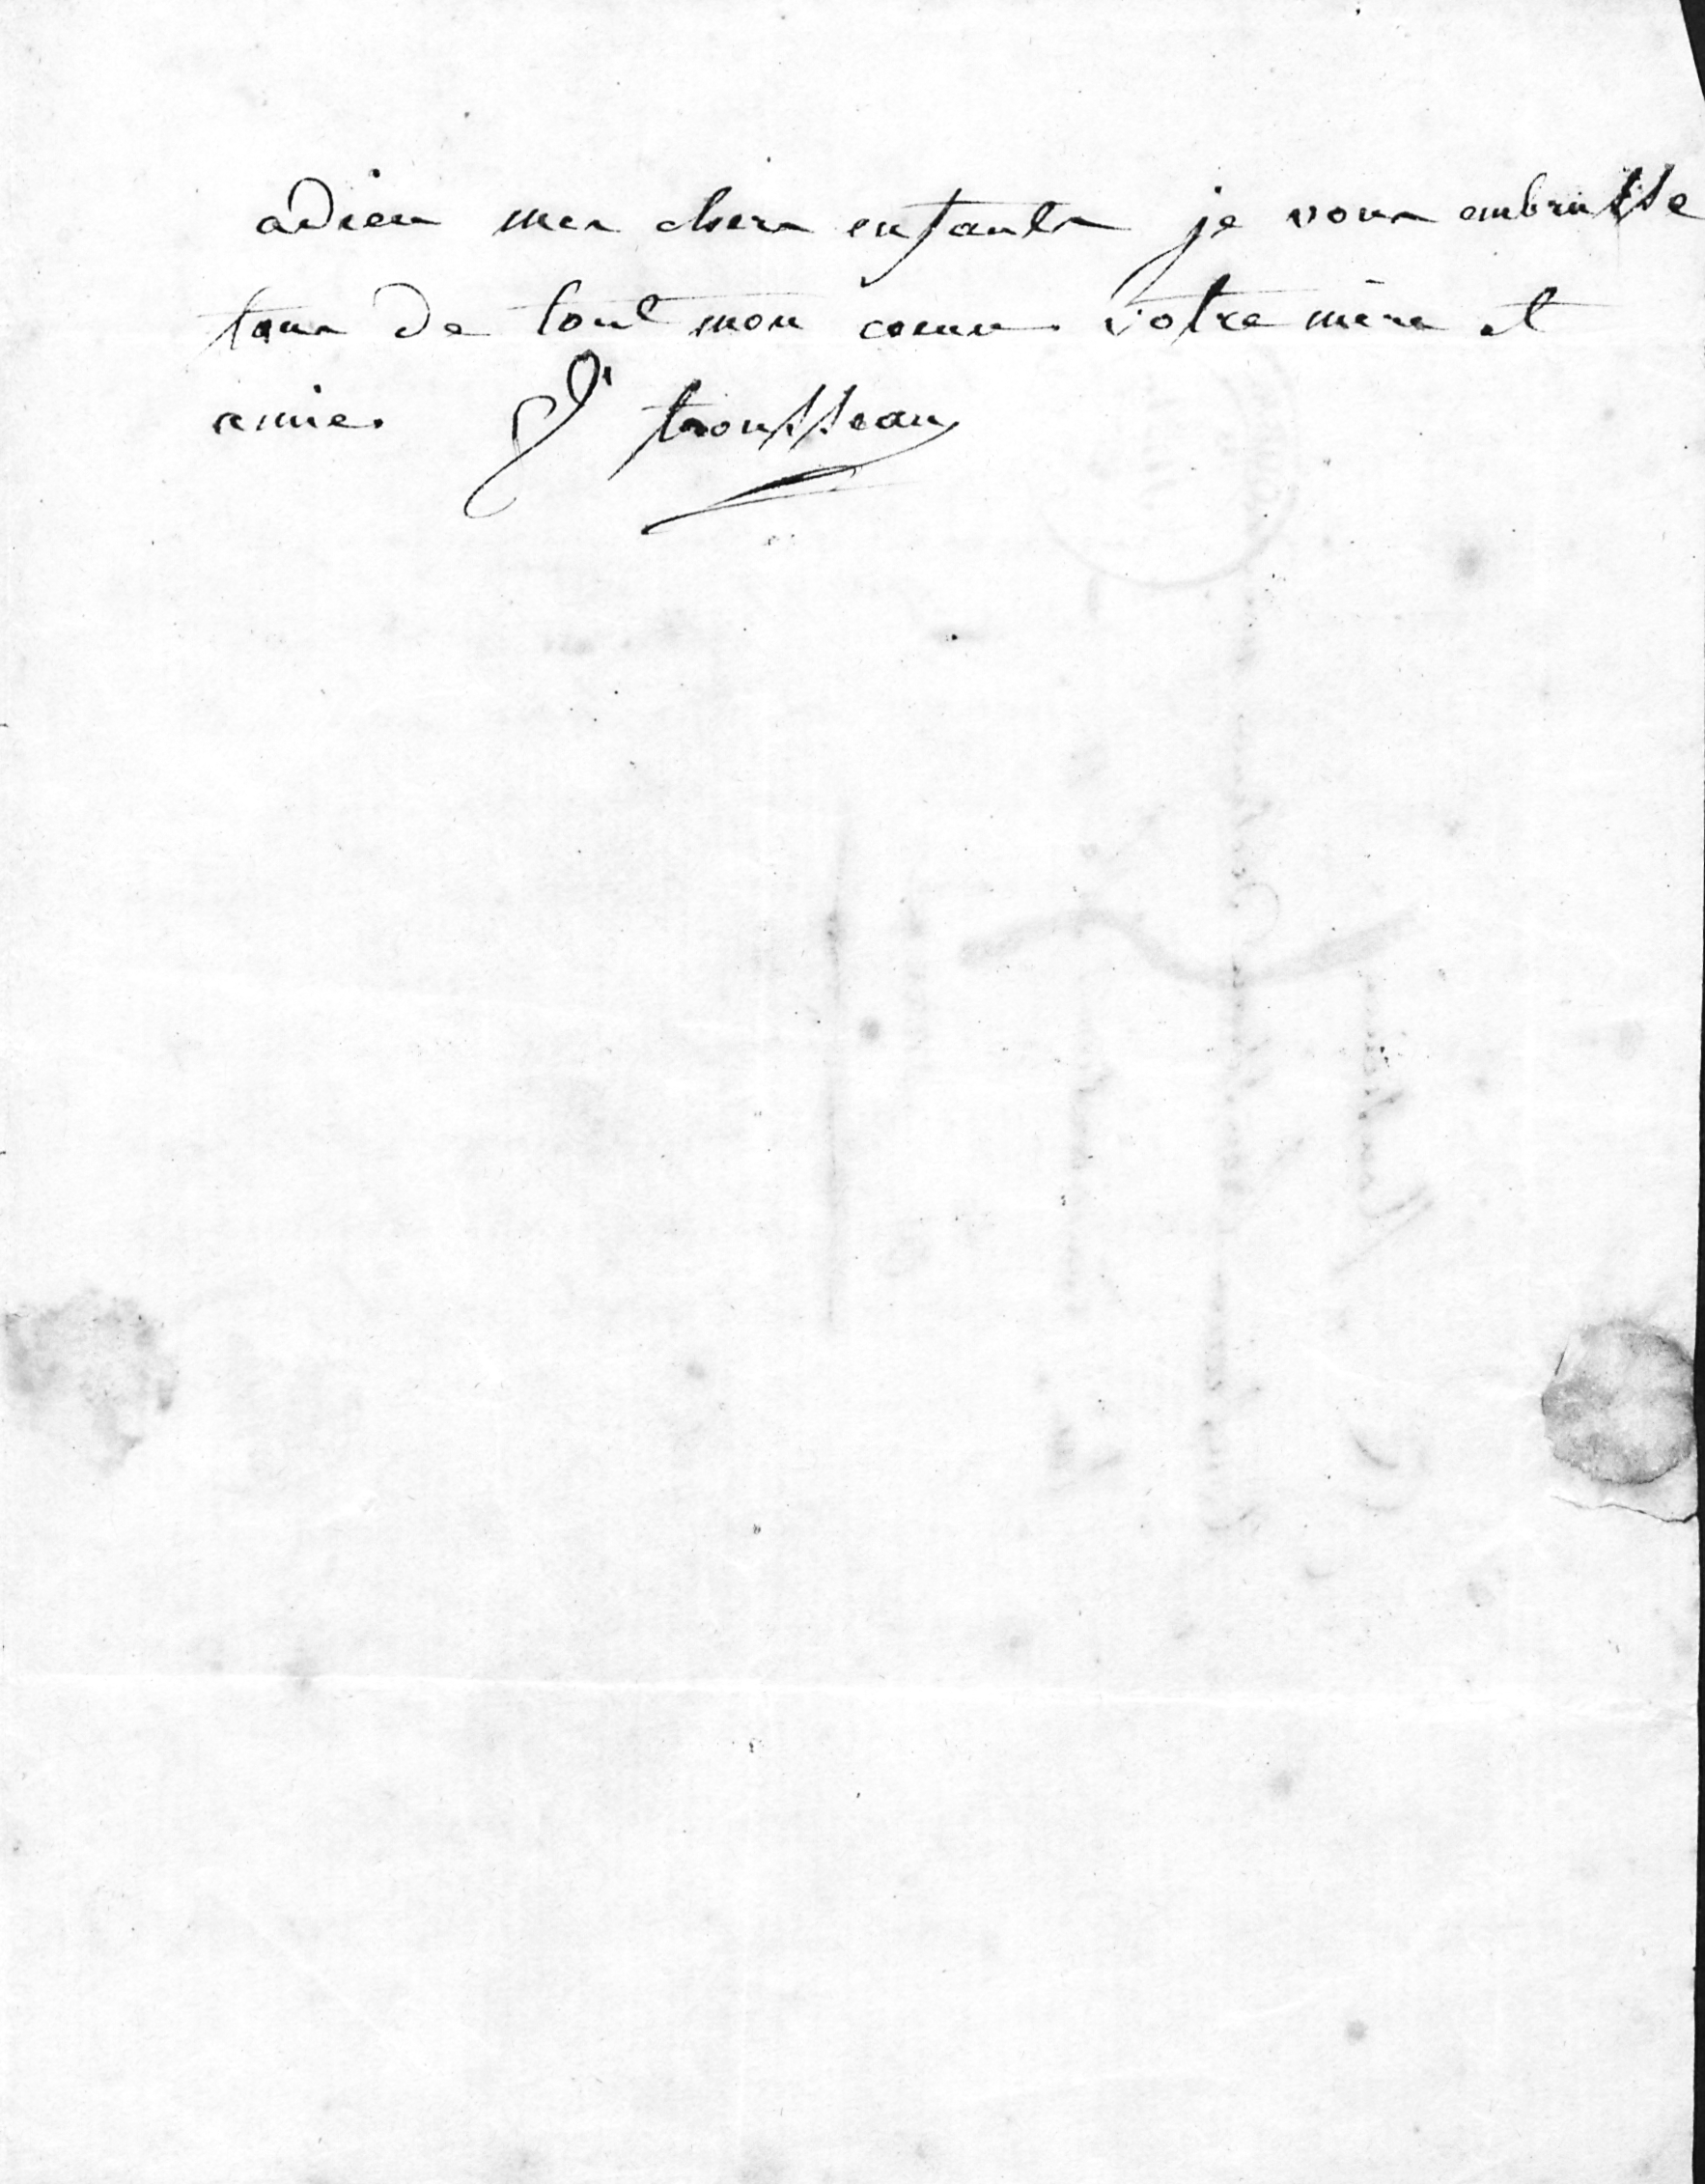 adieu mes chers enfants je vous embrasse
tous de tout mon coeur votre mère et
amie. Trousseau